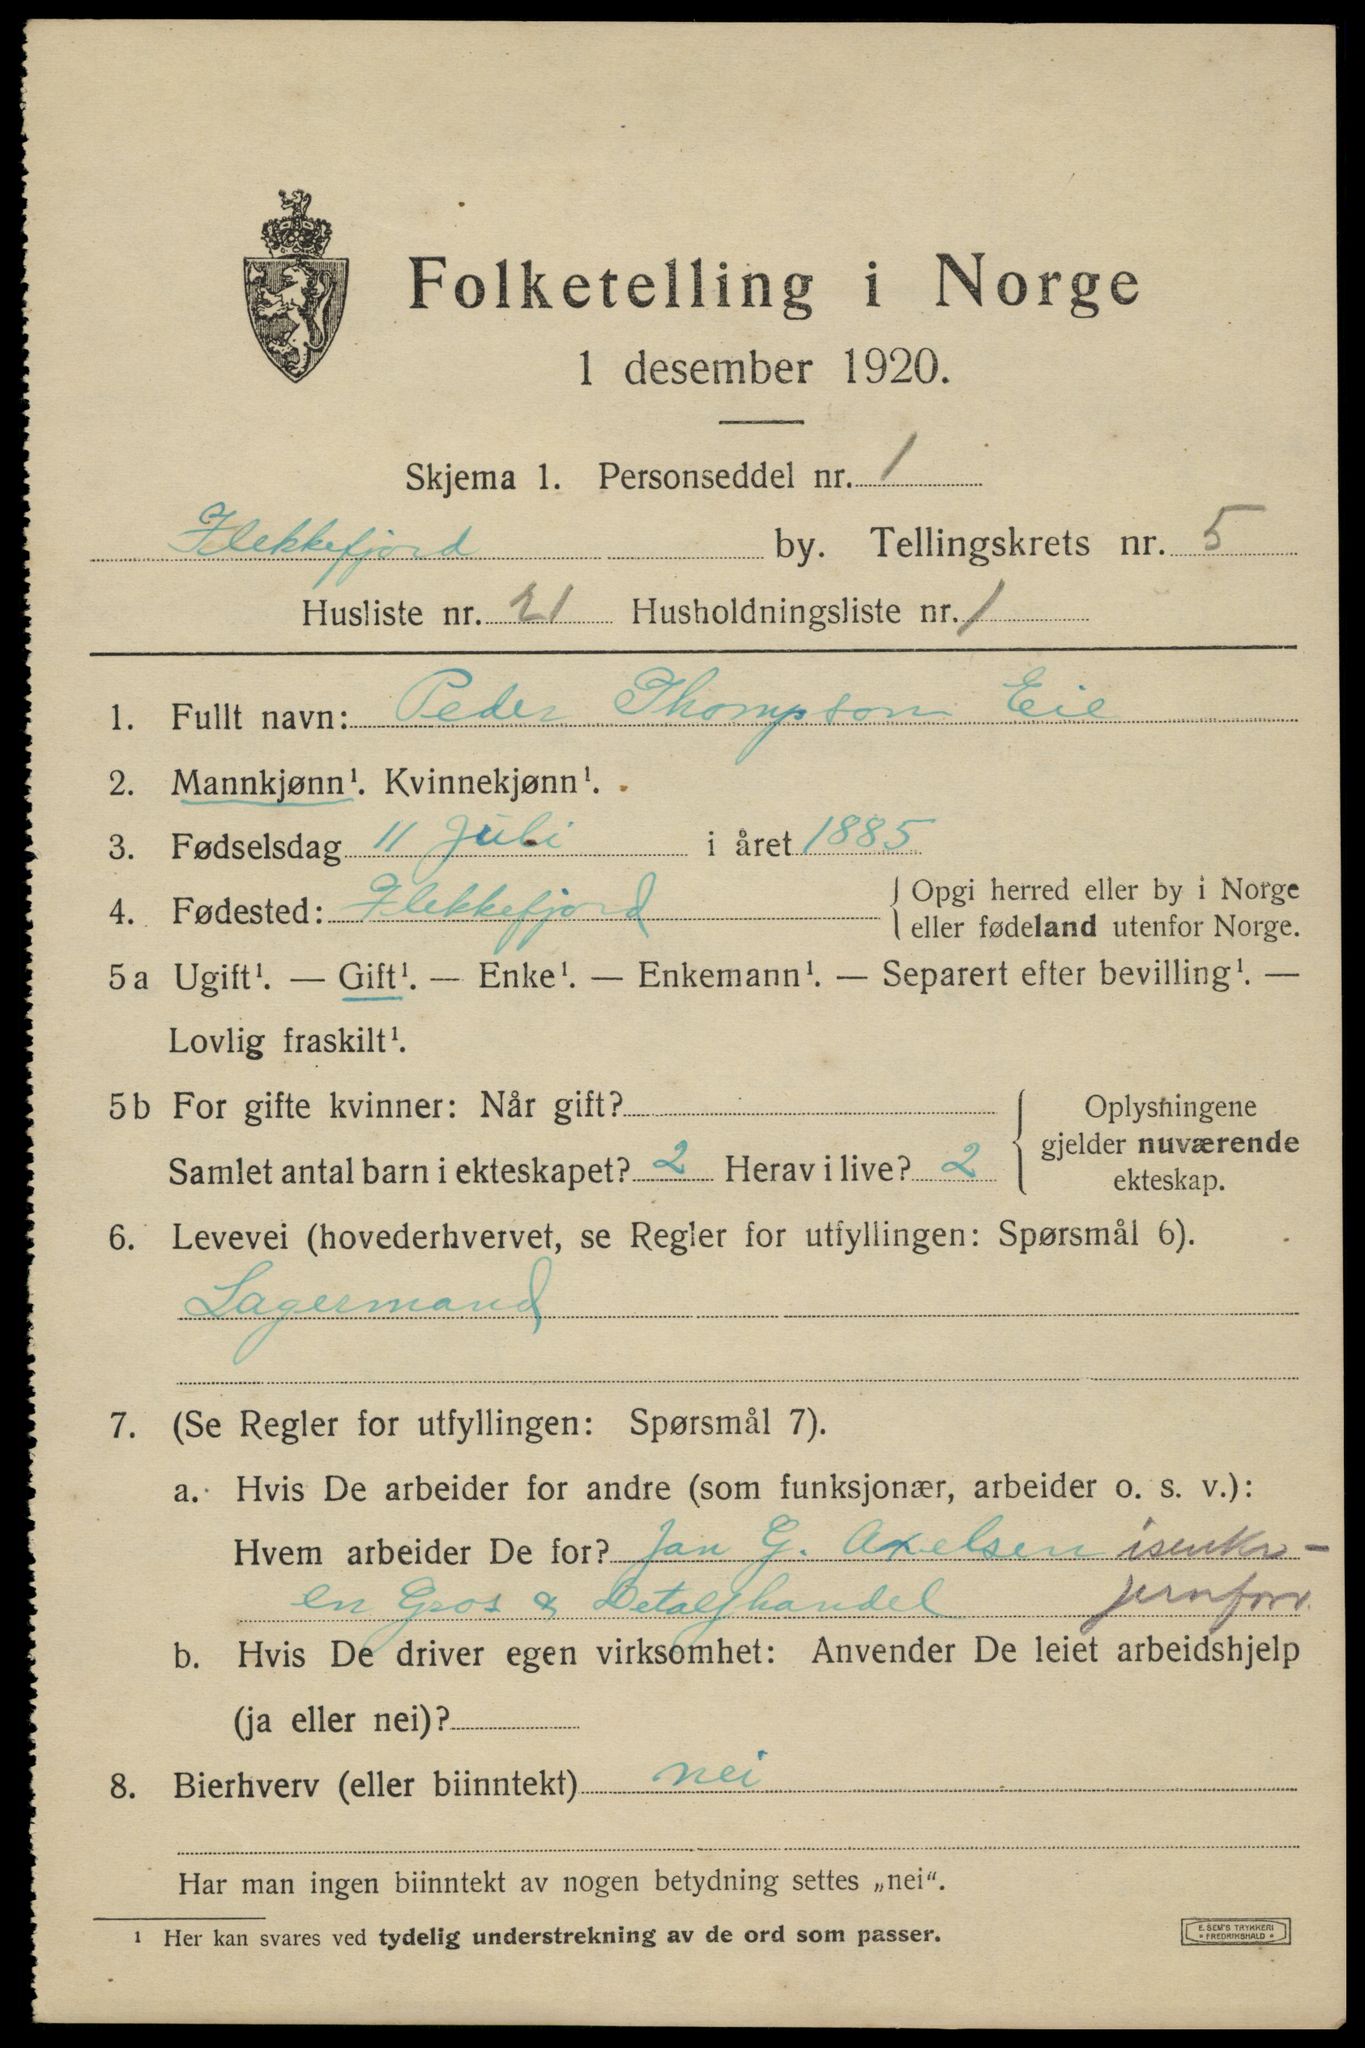 Folketelling i Norge
1 desember 1920.
Skjema 1. Personseddel nr. 1
Flekkefjord by. Tellingskrets nr. 5
Husliste nr. 21 Husholdningsliste nr. 1
1. Fullt navn: Peder Thompson Eie
2. Mannkjønn¹. Kvinnekjønn¹.
3. Fødselsdag 11 Juli i året 1885
4. Fødested: Flekkefjord { Opgi herred eller by i Norge
eller fødeland utenfor Norge.
5a Ugift¹. — Gift¹. — Enke¹. — Enkemann¹. — Separert efter bevilling¹. —
Lovlig fraskilt¹.
5b For gifte kvinner: Når gift? Oplysningene
gjelder nuværende
Samlet antal barn i ekteskapet? 2 Herav i live? 2 ekteskap.
6. Levevei (hovederhvervet, se Regler for utfyllingen: Spørsmål 6).
Lagermand
7. (Se Regler for utfyllingen: Spørsmål 7).
a. Hvis De arbeider for andre (som funksjonær, arbeider o. s. v.):
Hvem arbeider De for? Jan G. Axelsen isenkr-
en Gros & Detalghandel jernforr.
b. Hvis De driver egen virksomhet: Anvender De leiet arbeidshjelp
(ja eller nei)?
8. Bierhverv (eller biinntekt) nei
Har man ingen biinntekt av nogen betydning settes „nei".
¹ Her kan svares ved tydelig understrekning av de ord som passer.
E. SEM'S TRYKKERI
* FREDRIKSHALD *